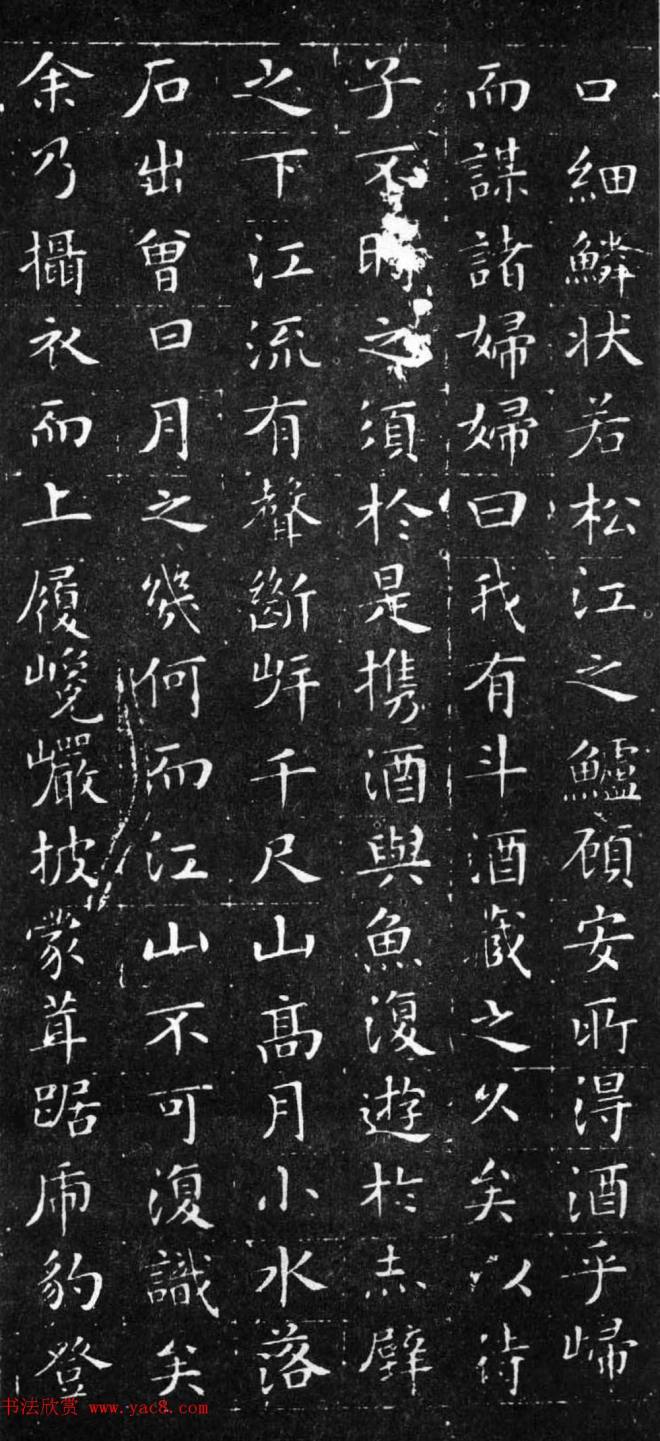 口細鱗状若松江之鱸顧安所得酒乎歸
而謀諸婦婦曰我有斗酒藏之久矣以待
子不時之須於是携酒與魚復遊於赤壁
之下江流有聲斷岸千尺山高月小水落
石出曾日月之幾何而江山不可復識矣
余乃攝衣而上履巉巖披蒙茸踞虎豹登
书法欣赏 www.yac8.com